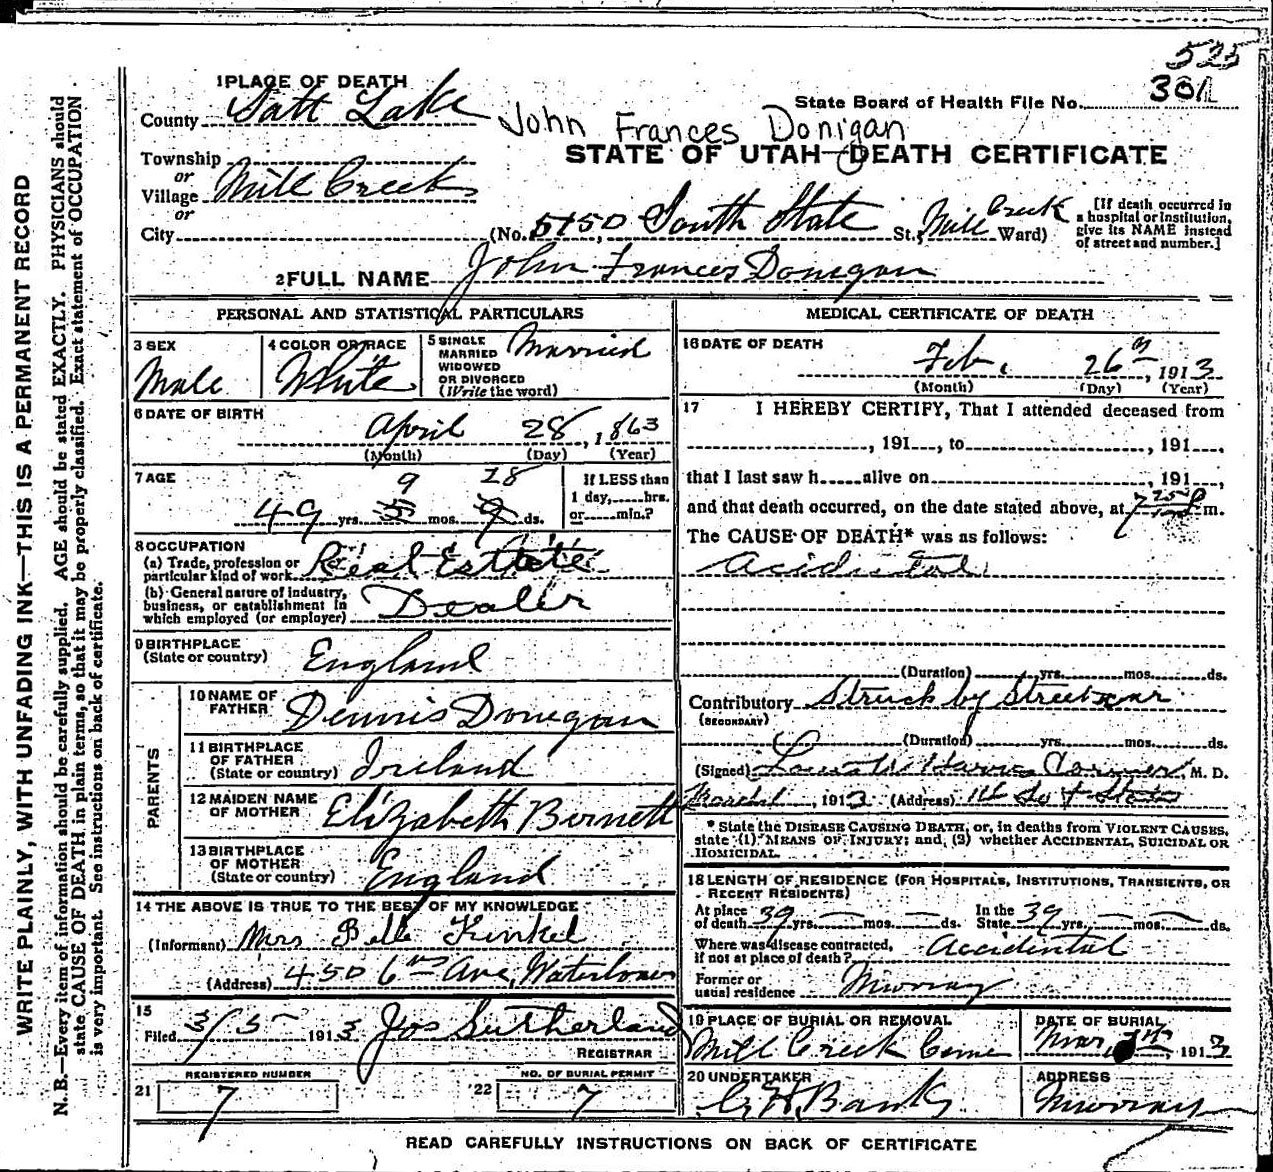 525
301
1 PLACE OF DEATH
State Board of Health File No.
County Salt Lake
John Frances Donigan
STATE OF UTAH—DEATH CERTIFICATE
Township
or
Village Mill Creek
or
City (No. 5150 South State St., Mill Creek Ward)
[If death occurred in
a hospital or institution,
give its NAME instead
of street and number.]
2 FULL NAME John Frances Donegan
PERSONAL AND STATISTICAL PARTICULARS
3 SEX
Male
4 COLOR OR RACE
White
5 SINGLE
MARRIED
WIDOWED
OR DIVORCED
(Write the word)
Married
6 DATE OF BIRTH
April 28, 1863
(Month) (Day) (Year)
7 AGE
9 28
49 yrs. mos. 9 ds.
If LESS than
1 day, hrs.
or min.?
8 OCCUPATION
(a) Trade, profession or
particular kind of work Real Estate
(b) General nature of industry,
business, or establishment in
which employed (or employer) Dealer
9 BIRTHPLACE
(State or country) England
PARENTS
10 NAME OF
FATHER Dennis Donegan
11 BIRTHPLACE
OF FATHER
(State or country) Ireland
12 MAIDEN NAME
OF MOTHER Elizabeth Burnett
13 BIRTHPLACE
OF MOTHER
(State or country) England
14 THE ABOVE IS TRUE TO THE BEST OF MY KNOWLEDGE
(Informant) Mrs Belle Kinkel
(Address) 450 6th Ave, Waterloo
15
Filed 3/5 1913 Jos Sutherland
REGISTRAR
REGISTERED NUMBER
21 7
NO. OF BURIAL PERMIT
22 7
MEDICAL CERTIFICATE OF DEATH
16 DATE OF DEATH
Feb. 26, 1913
(Month) (Day) (Year)
17 I HEREBY CERTIFY, That I attended deceased from
, 191 , to , 191 ,
that I last saw h alive on , 191 ,
and that death occurred, on the date stated above, at 7 25 P m.
The CAUSE OF DEATH* was as follows:
Acidental
(Duration) yrs. mos. ds.
Contributory Struck by Street car
(SECONDARY)
(Duration) yrs. mos. ds.
(Signed) Harris Corner, M. D.
March 1, 1913 (Address)
* State the DISEASE CAUSING DEATH, or, in deaths from VIOLENT CAUSES,
state (1) MEANS OF INJURY; and, (2) whether ACCIDENTAL, SUICIDAL OR
HOMICIDAL.
18 LENGTH OF RESIDENCE (FOR HOSPITALS, INSTITUTIONS, TRANSIENTS, OR
RECENT RESIDENTS)
At place of death 39 yrs. mos. ds. In the State 39 yrs. mos. ds.
Where was disease contracted,
if not at place of death? Accidental
Former or
usual residence Murray
19 PLACE OF BURIAL OR REMOVAL
Mill Creek Ceme
DATE OF BURIAL
Mar, 1913
20 UNDERTAKER
Banks
ADDRESS
Murray
READ CAREFULLY INSTRUCTIONS ON BACK OF CERTIFICATE
WRITE PLAINLY, WITH UNFADING INK—THIS IS A PERMANENT RECORD
N. B.—Every item of information should be carefully supplied. AGE should be stated EXACTLY. PHYSICIANS should
state CAUSE OF DEATH in plain terms, so that it may be properly classified. Exact statement of OCCUPATION
is very important. See instructions on back of certificate.